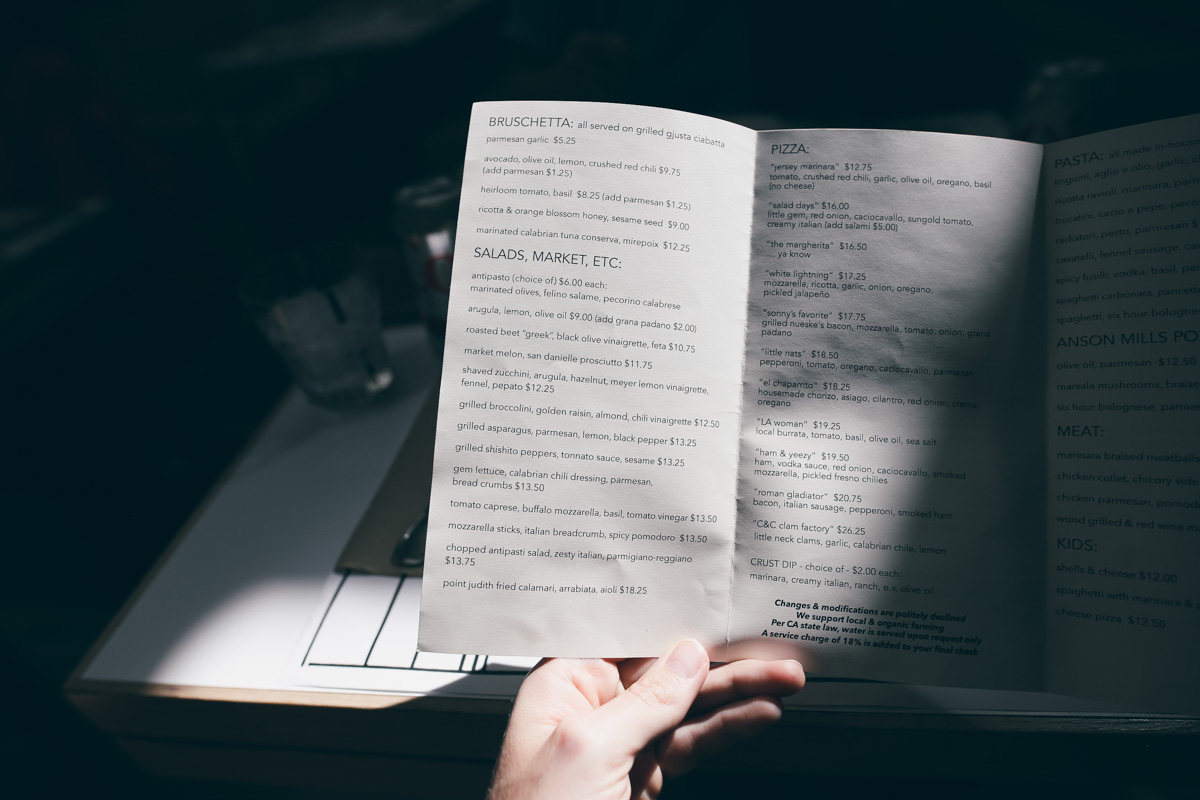 BRUSCHETTA: all served on grilled gjusta ciabatta
parmesan garlic $5.25
avocado, olive oil, lemon, crushed red chili $9.75
(add parmesan $1.25)
heirloom tomato, basil $8.25 (add parmesan $1.25)
ricotta & orange blossom honey, sesame seed $9.00
marinated calabrian tuna conserva, mirepoix $12.25
SALADS, MARKET, ETC:
antipasto (choice of) $6.00 each:
marinated olives, felino salame, pecorino calabrese
arugula, lemon, olive oil $9.00 (add grana padano $2.00)
roasted beet "greek", black olive vinaigrette, feta $10.75
market melon, san danielle prosciutto $11.75
shaved zucchini, arugula, hazelnut, meyer lemon vinaigrette,
fennel, pepato $12.25
grilled broccolini, golden raisin, almond, chili vinaigrette $12.50
grilled asparagus, parmesan, lemon, black pepper $13.25
grilled shishito peppers, tonnato sauce, sesame $13.25
gem lettuce, calabrian chili dressing, parmesan,
bread crumbs $13.50
tomato caprese, buffalo mozzarella, basil, tomato vinegar $13.50
mozzarella sticks, italian breadcrumb, spicy pomodoro $13.50
chopped antipasti salad, zesty italian, parmigiano-reggiano
$13.75
point judith fried calamari, arrabiata, aioli $18.25
PIZZA:
"jersey marinara" $12.75
tomato, crushed red chili, garlic, olive oil, oregano, basil
(no cheese)
"salad days" $16.00
little gem, red onion, caciocavallo, sungold tomato,
creamy italian (add salami $5.00)
"the margherita" $16.50
.... ya know
"white lightning" $17.25
mozzarella, ricotta, garlic, onion, oregano,
pickled jalapeño
"sonny's favorite" $17.75
grilled nueske's bacon, mozzarella, tomato, onion, grana
padano
"little nats" $18.50
pepperoni, tomato, oregano, caciocavallo, parmesan
"el chaparrito" $18.25
housemade chorizo, asiago, cilantro, red onion, crema,
oregano
"LA woman" $19.25
local burrata, tomato, basil, olive oil, sea salt
"ham & yeezy" $19.50
ham, vodka sauce, red onion, caciocavallo, smoked
mozzarella, pickled fresno chilies
"roman gladiator" $20.75
bacon, italian sausage, pepperoni, smoked ham
"C&C clam factory" $26.25
little neck clams, garlic, calabrian chile, lemon
CRUST DIP - choice of - $2.00 each:
marinara, creamy italian, ranch, e.v. olive oil
Changes & modifications are politely declined
We support local & organic farming
Per CA state law, water is served upon request only
A service charge of 18% is added to your final check
PASTA: all made in house
linguini, aglio e olio, garlic,
ricotta ravioli, marinara,
bucatini, cacio e pepe,
radiatori, pesto, parmesan
cavatelli, fennel sausage,
spicy fusilli, vodka, basil,
spaghetti carbonara,
spaghetti, six hour
ANSON MILLS
olive oil, parmesan $12.50
marsala mushrooms,
six hour bolognese,
MEAT:
marinara braised
chicken cutlet, chicory
chicken parmesan,
wood grilled & red wine
KIDS:
shells & cheese $12.00
spaghetti with marinara &
cheese pizza $12.50